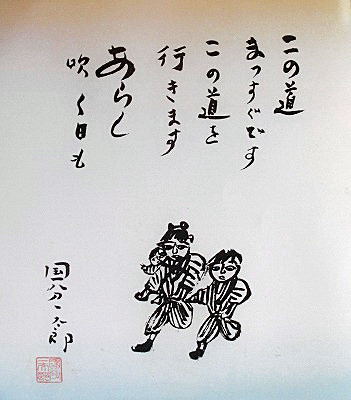 この道
まっすぐです
この道を
行きます
あらし
吹く日も
国分一太郎